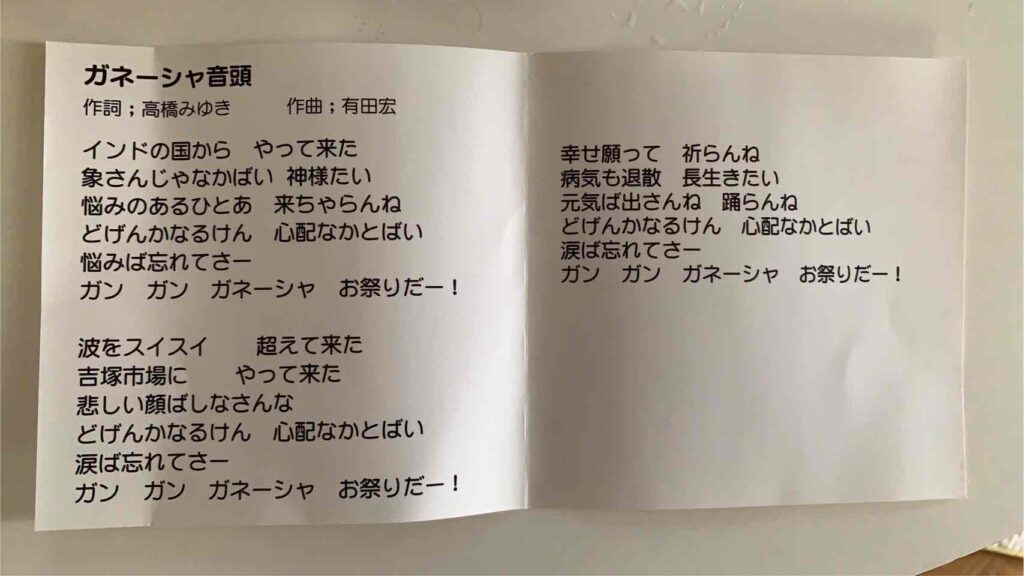 ガネーシャ音頭
作詞；高橋みゆき　　作曲；有田宏
インドの国から　やって来た
象さんじゃなかばい 神様たい
悩みのあるひとあ　来ちゃらんね
どげんかなるけん　心配なかとばい
悩みば忘れてさー
ガン　ガン　ガネーシャ　お祭りだー！
波をスイスイ　　超えて来た
吉塚市場に　　やって来た
悲しい顔ばしなさんな
どげんかなるけん　心配なかとばい
涙ば忘れてさー
ガン　ガン　ガネーシャ　お祭りだー！
幸せ願って　祈らんね
病気も退散　長生きたい
元気ば出さんね　踊らんね
どげんかなるけん　心配なかとばい
涙ば忘れてさー
ガン　ガン　ガネーシャ　お祭りだー！